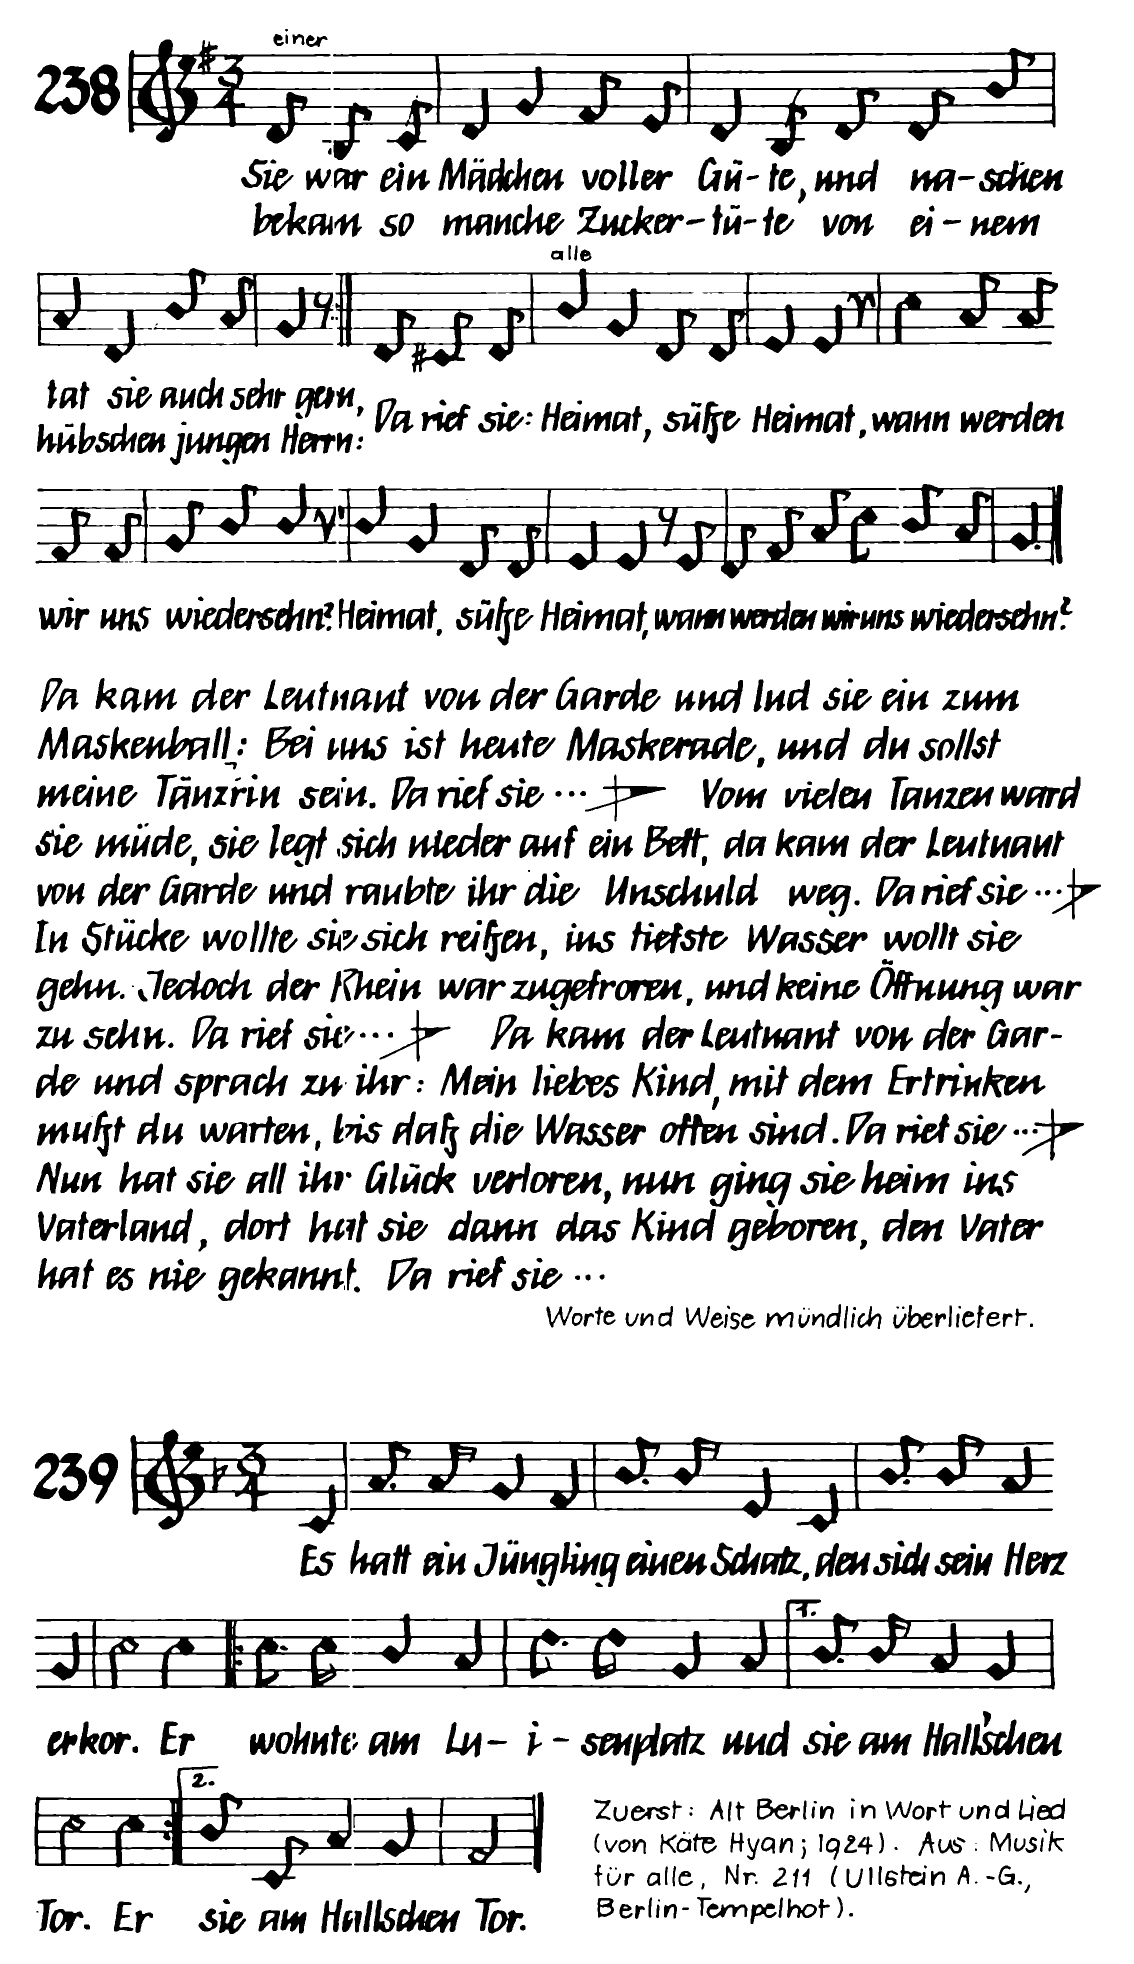 einer
238
Sie war ein Mädchen voller Gü-te, und na-schen
bekam so manche Zucker-tü-te von ei-nem
alle
tat sie auch sehr gern,
hübschen jungen Herrn:
Da rief sie: Heimat, süße Heimat, wann werden
wir uns wiedersehn? Heimat, süße Heimat, wann werden wir uns wiedersehn?
Da kam der Leutnant von der Garde und lud sie ein zum
Maskenball: Bei uns ist heute Maskerade, und du sollst
meine Tänzrin sein. Da rief sie ... Vom vielen Tanzen ward
sie müde, sie legt sich nieder auf ein Bett, da kam der Leutnant
von der Garde und raubte ihr die Unschuld weg. Da rief sie ...
In Stücke wollte sie sich reißen, ins tiefste Wasser wollt sie
gehn. Jedoch der Rhein war zugefroren, und keine Öffnung war
zu sehn. Da rief sie ... Da kam der Leutnant von der Gar-
de und sprach zu ihr: Mein liebes Kind, mit dem Ertrinken
mußt du warten, bis daß die Wasser offen sind. Da rief sie ...
Nun hat sie all ihr Glück verloren, nun ging sie heim ins
Vaterland, dort hat sie dann das Kind geboren, den Vater
hat es nie gekannt. Da rief sie ...
Worte und Weise mündlich überliefert.
239
Es hatt ein Jüngling einen Schatz, den sich sein Herz
1.
erkor. Er wohnte am Lu-i-senplatz und sie am Hall'schen
2.
Tor. Er sie am Hallschen Tor.
Zuerst: Alt Berlin in Wort und Lied
(von Käte Hyan; 1924). Aus: Musik
für alle, Nr. 211 (Ullstein A.-G.,
Berlin-Tempelhof).